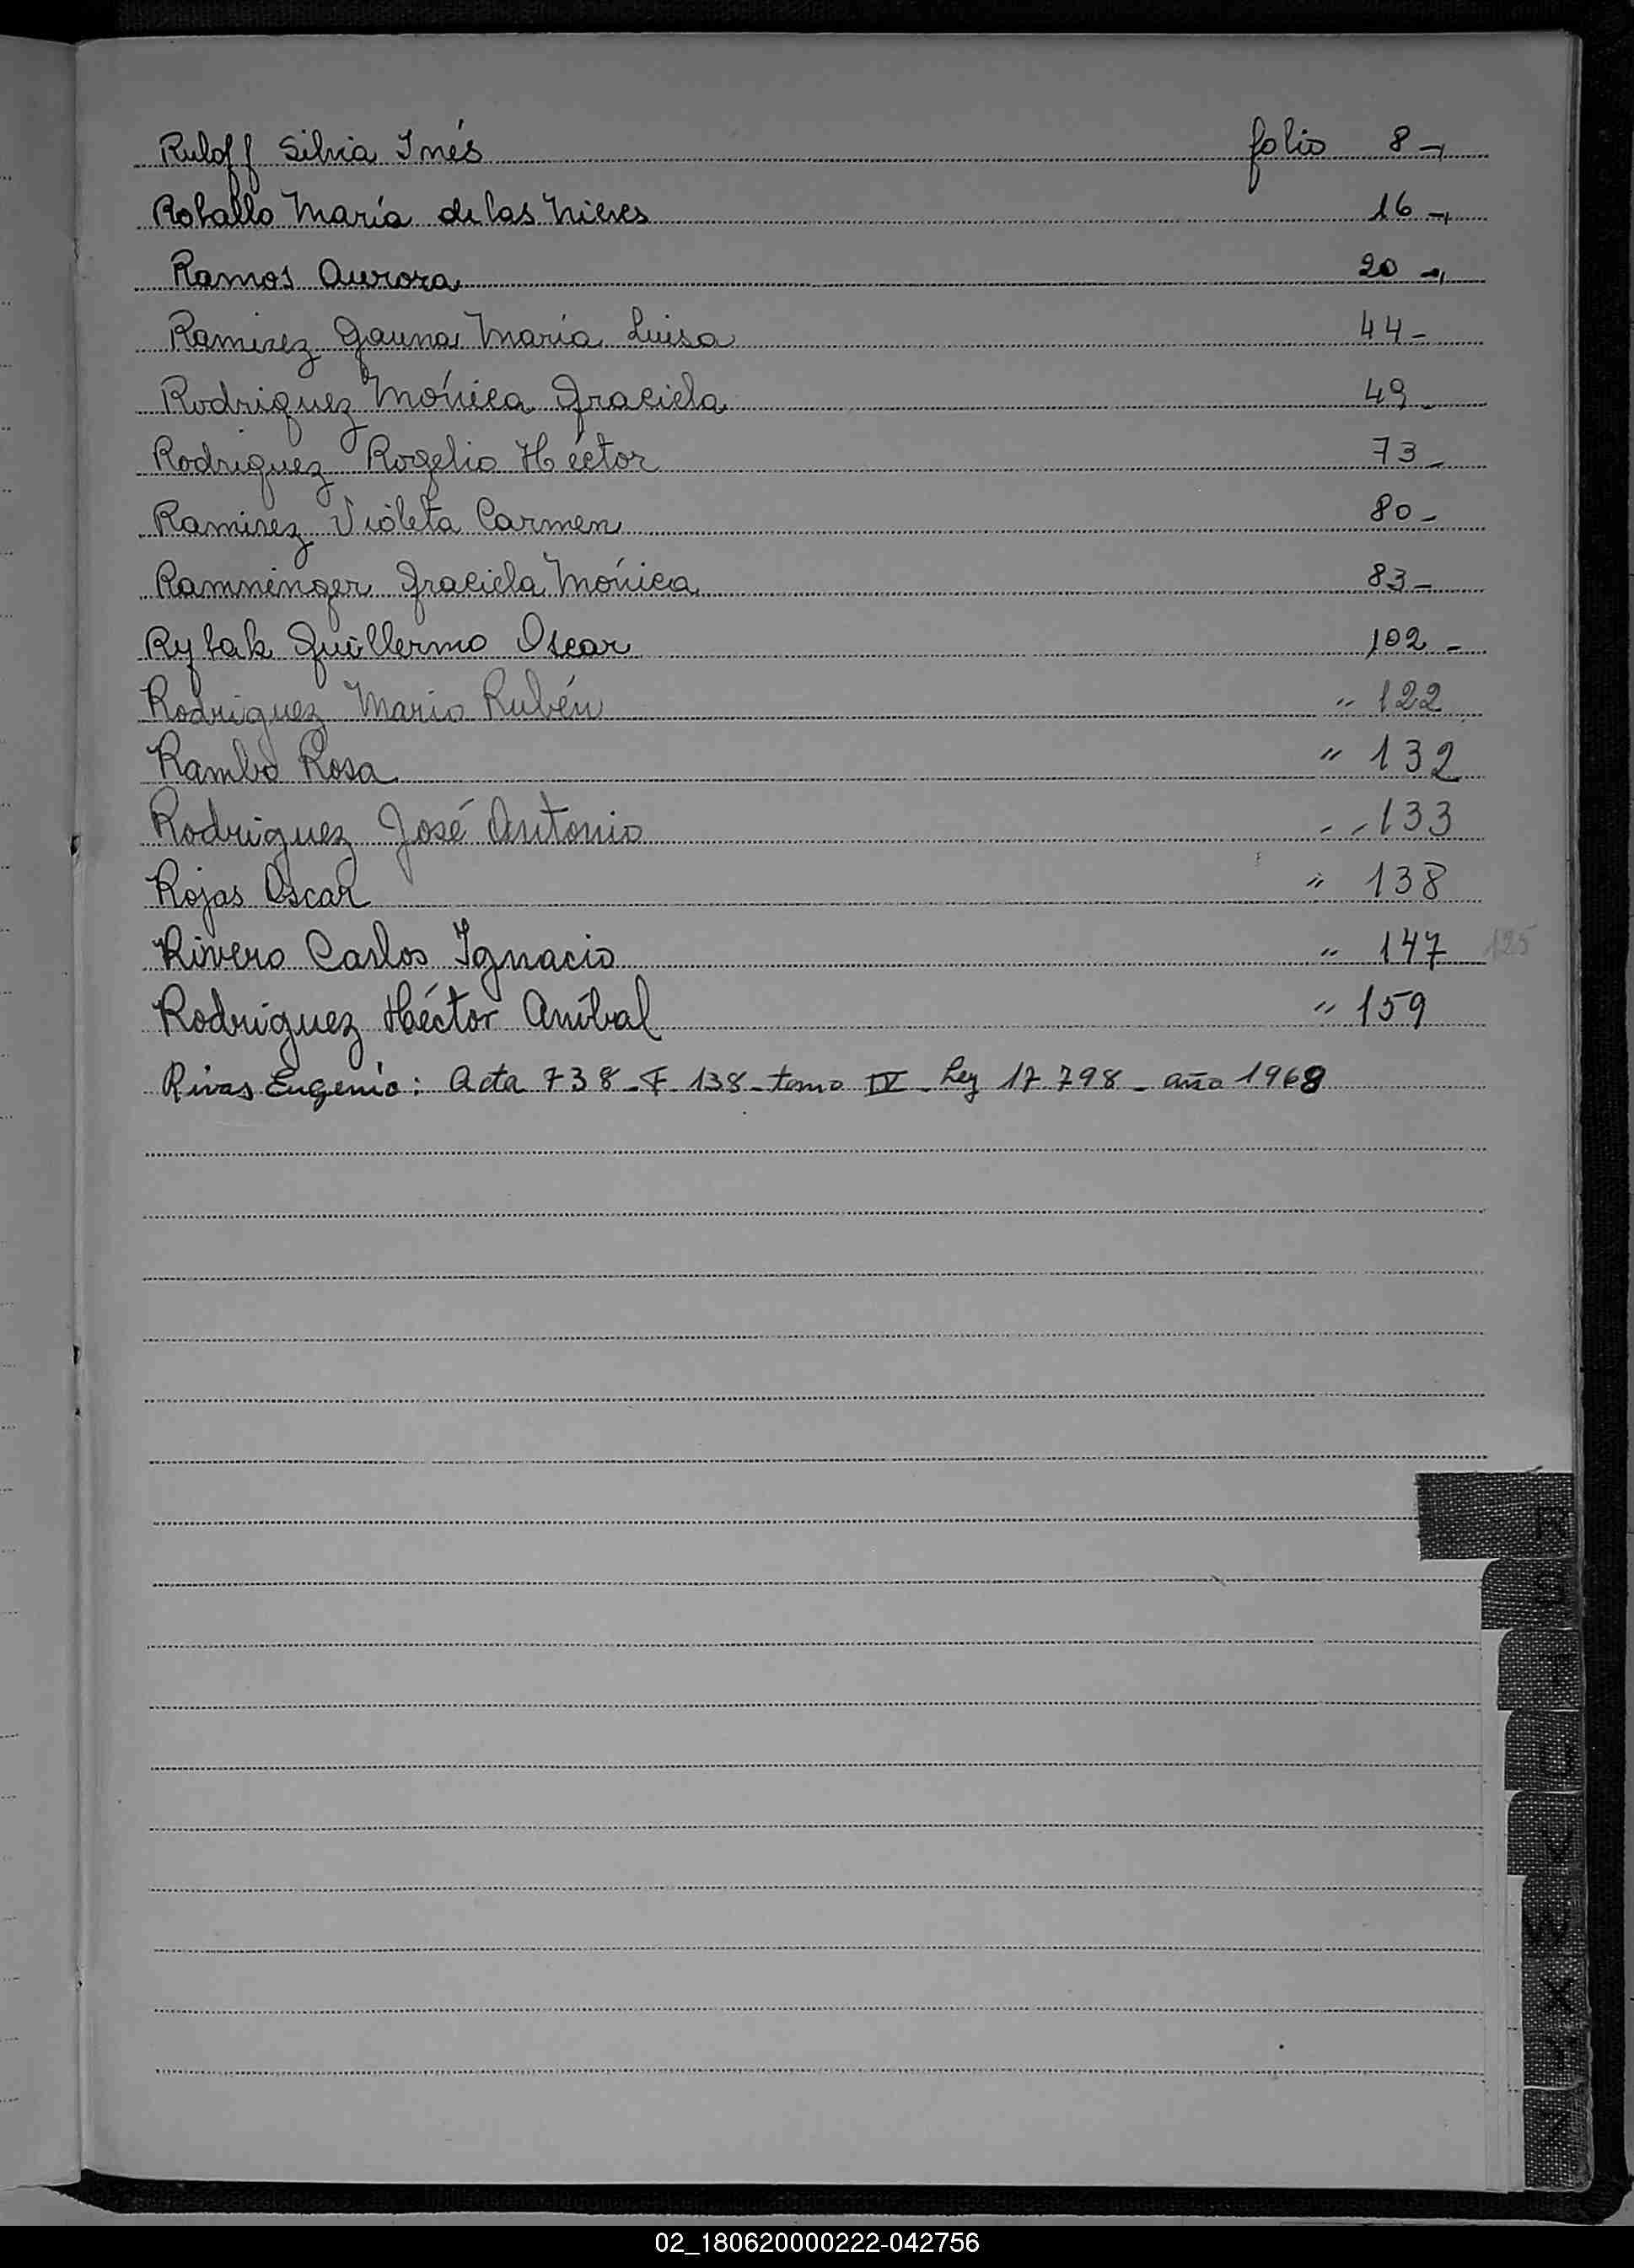 Ruloff Silvia Inés folio 8-,
Roballo María de las Nieves 16-,
Ramos Aurora 20-,
Ramirez Gauna María Luisa 44-
Rodriguez Mónica Graciela 49-
Rodriguez Rogelio Héctor 73-
Ramirez Violeta Carmen 80-
Ramninger Graciela Mónica 83-
Rybak Guillermo Oscar 102-
Rodriguez Mario Rubén " 122
Rambo Rosa " 132
Rodriguez José Antonio " 133
Rojas Oscar " 138
Rivero Carlos Ignacio " 147 125
Rodriguez Héctor Aníbal " 159
Rivas Eugenio: Acta 738-F 138-tomo IV-Ley 17.798-año 1968
R
S
T
U
V
W
X
Y
Z
02_180620000222-042756